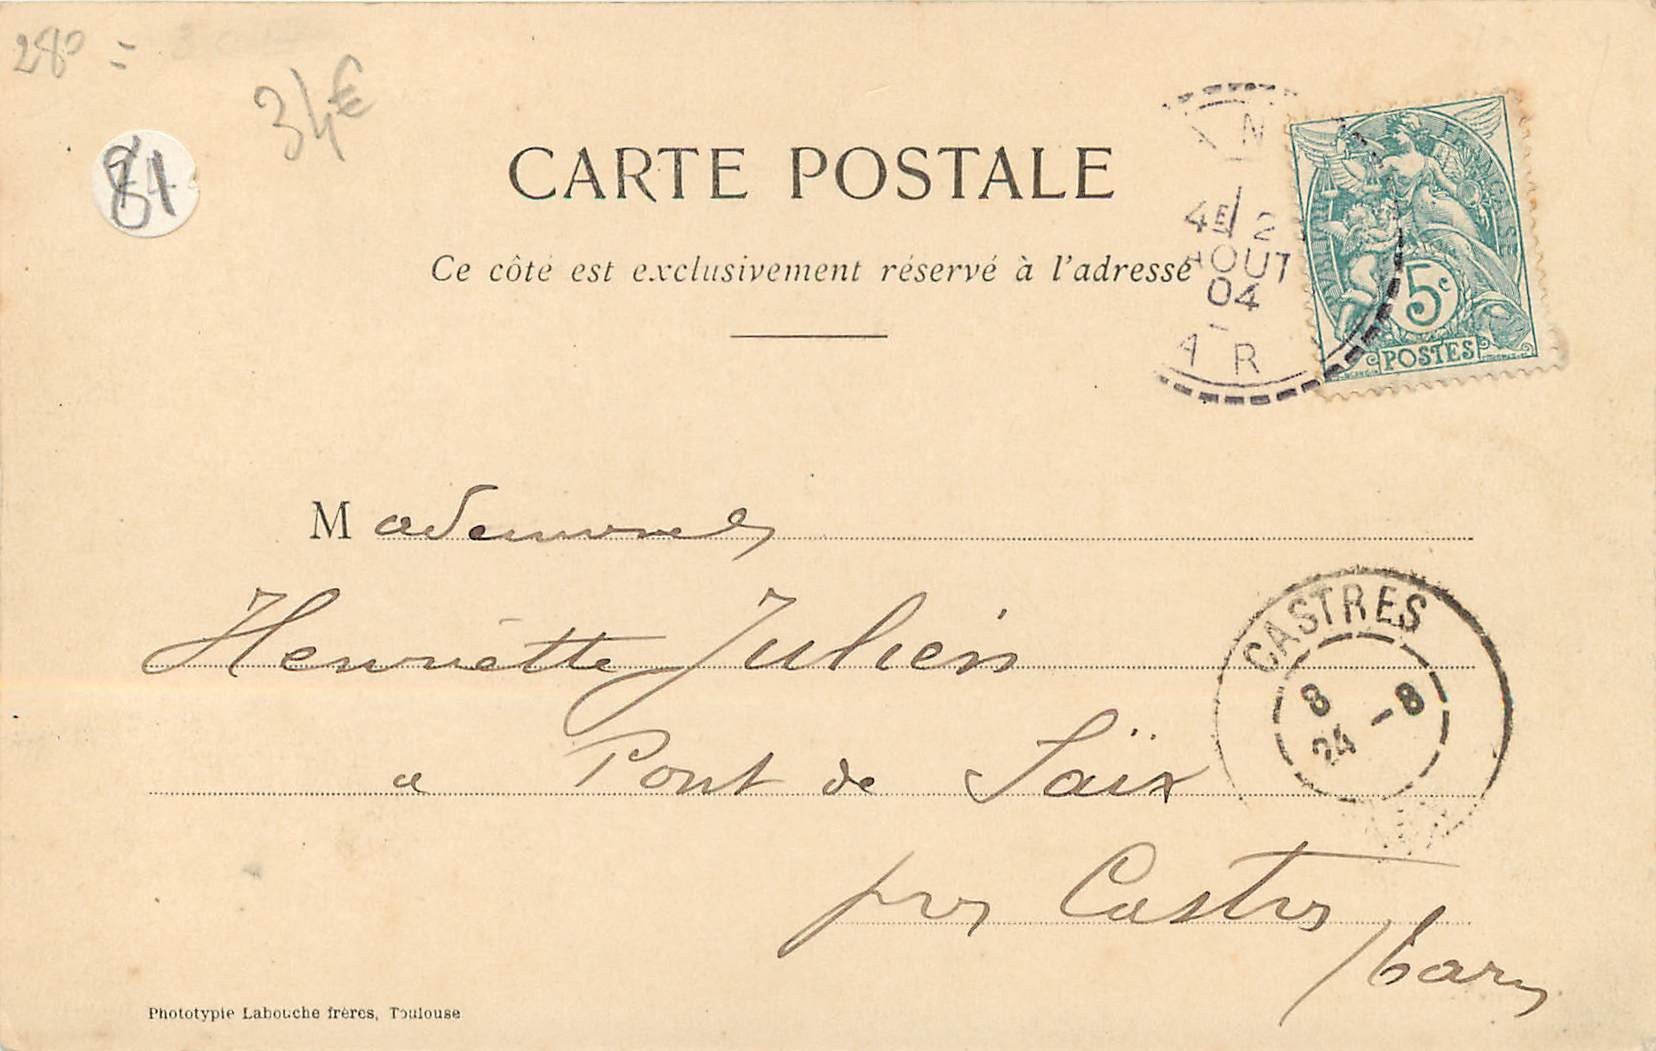 28° =
34€
81
CARTE POSTALE
Ce côté est exclusivement réservé à l'adresse
4E 2
AOUT
04
A R
RÉPUBLIQUE FRANÇAISE
5c
POSTES
Mademoiselle
Henriette Julien
a Pont de Saïx
près Castres
Tarn
CASTRES
8
24 - 8
Phototypie Labouche frères, Toulouse